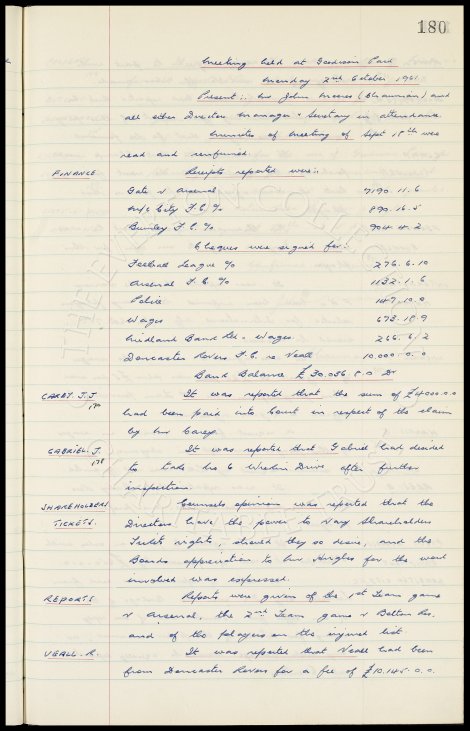 180
Meeting held at Goodison Park
Monday 2nd October 1961
Present:- Mr John Moores (Chairman) and
all other Directors Manager & Secretary in attendance.
Minutes of meeting of Sept 18th were
read and confirmed.
FINANCE Receipts reported were:-
Gate v Arsenal 7190.11.6
M/c City F.C. % 890.16.5
Burnley F.C. % 904.4.2
Cheques were signed for:-
Football League % 276.6.10
Arsenal F.C. % 1132.1.6
Police 147.10.0
Wages 673.18.9
Midland Bank Ltd - Wages. 266.6.2
Doncaster Rovers F.C. re Veall 10.000.0.0
Bank Balance £30.036.8.0 Dr
CAREY J.J. It was reported that the sum of £4000.0.0
had been paid into Court in respect of the claim
by Mr Carey.
GABRIEL. J. It was reported that Gabriel had decided
178 to take No 6 Drive after further
inspection.
SHAREHOLDERS Counsels opinion was reported that the
TICKETS. Directors have the power to vary Shareholders
Tickets rights, should they so desire, and the
Boards appreciation to Mr for the work
involved was expressed.
REPORTS Reports were given of the 1st Team game
v Arsenal, the 2nd Team game v Bolton Res.
and of the players on the injured list.
VEALL. R. It was reported that Veall had been
from Doncaster Rovers for a fee of £10.145.0.0.
THE EVERTON COLLECTION